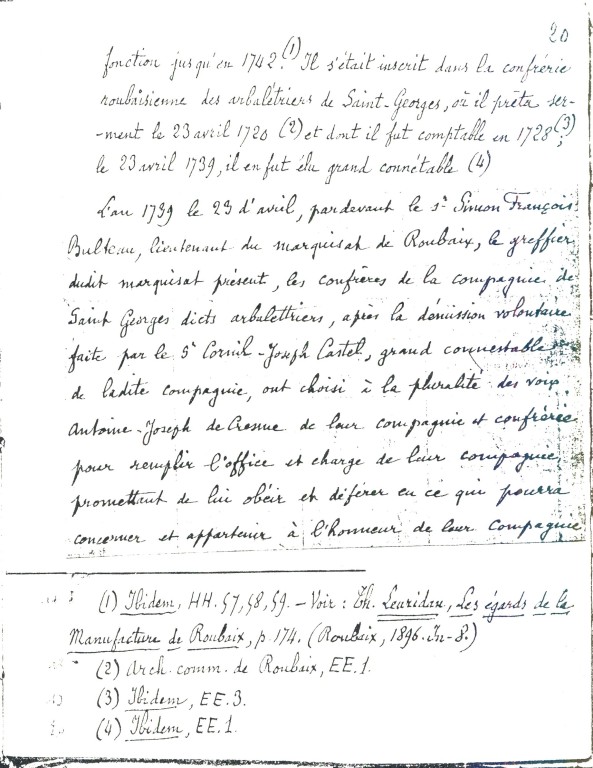 20
fonction jusqu'en 1742.(1) Il s'était inscrit dans la confrérie
roubaisienne des arbalétriers de Saint-Georges, où il prêta ser-
-ment le 23 avril 1720 (2) et dont il fut comptable en 1728 (3);
le 23 avril 1739, il en fut élu grand connétable (4)
L'an 1739 le 23 d'avril, pardevant le sr Simon François
Bulteau, lieutenant du marquisat de Roubaix, le greffier
dudit marquisat présent, les confrères de la compagnie de
Saint Georges dicts arbalettriers, après la démission volontaire
faite par le Sr Cornil-Joseph Castel, grand connestable
de ladite compagnie, ont choisi à la pluralité des voix
Antoine-Joseph de Cresme de leur compagnie et confrérie
pour remplir l'office et charge de leur compagnie,
promettant de lui obéir et déférer en ce qui pourra
concerner et appartenir à l'honneur de leur compagnie
(1) Ibidem, HH. 57, 58, 59. - Voir : Th. Leuridan, Les égards de la
Manufacture de Roubaix, p. 174. (Roubaix, 1896. In-8.)
(2) Arch. comm. de Roubaix, EE. 1.
(3) Ibidem, EE. 3.
(4) Ibidem, EE. 1.